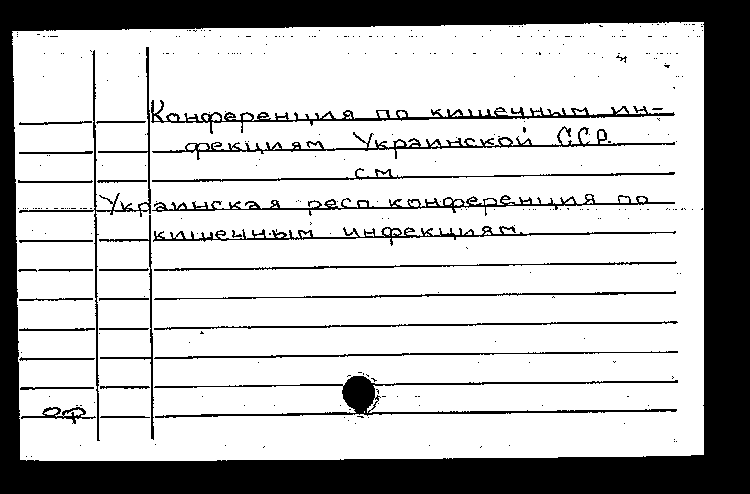 Конференция по кишечным ин-
фекциям Украинской ССР
см
Украинская респ конференция по
кишечным инфекциям.
оф